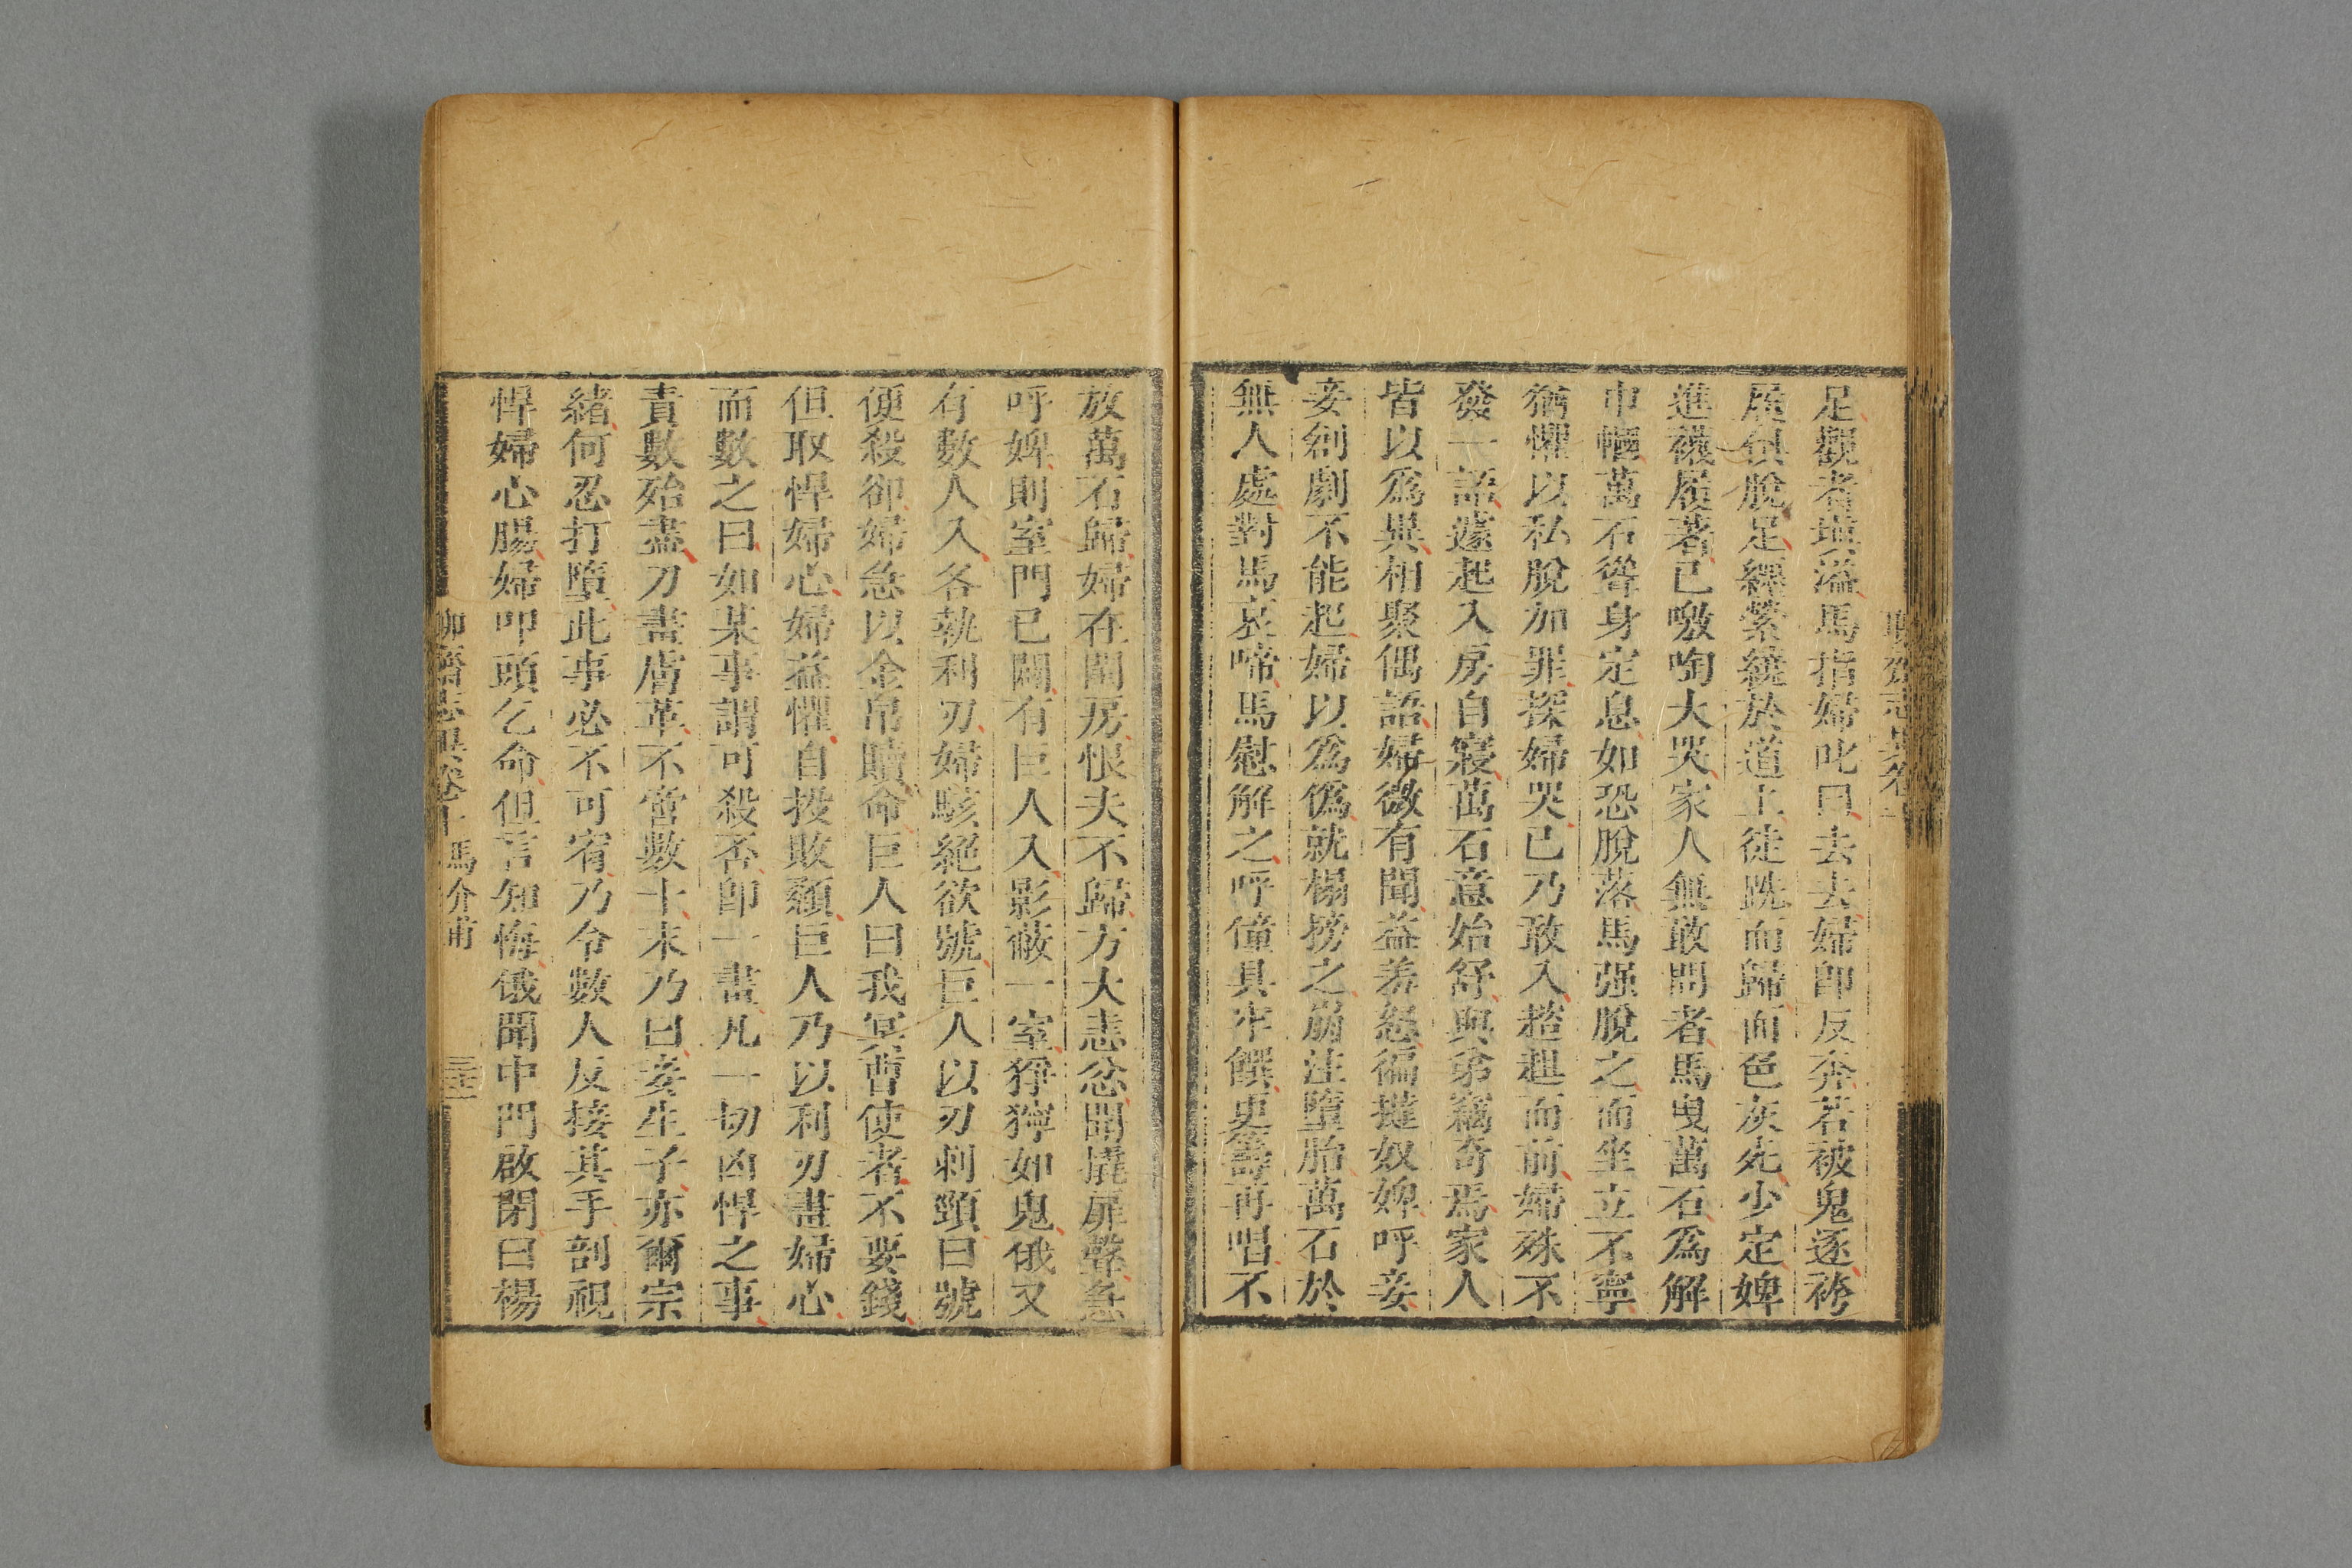 足觀者塡溢馬指婦叱曰去去婦卽反奔若被鬼逐袴
履俱脫足纏縈繞於道上徒跣而歸面色灰死少定婢
進襪履著已噭咷大哭家人無敢問者馬曳萬石爲解
巾幗萬石聳身定息如恐脫落馬强脫之而坐立不寧
猶懼以私脫加罪探婦哭已乃敢入趦趄而前婦殊不
發一語遽起入房自寢萬石意始舒與弟竊奇焉家人
皆以爲異相聚偶語婦微有聞益羞怒徧撻奴婢呼妾
妾創劇不能起婦以爲僞就榻搒之崩注墮胎萬石於
無人處對馬哀啼馬慰解之呼僮具牢饌更籌再唱不
放萬石歸婦在閨房恨夫不歸方大恚忿聞撬扉聲急
呼婢則室門已闢有巨人入影蔽一室猙獰如鬼俄又
有數人入各執利刃婦駭絕欲號巨人以刃刺頸曰號
便殺卻婦急以金帛贖命巨人曰我冥曹使者不要錢
但取悍婦心婦益懼自投敗顙巨人乃以利刃畫婦心
而數之曰如某事謂可殺否卽一畫凡一切凶悍之事
責數殆盡刀畫膚革不啻數十末乃曰妾生子亦爾宗
緒何忍打墮此事必不可宥乃令數人反接其手剖視
悍婦心腸婦叩頭乞命但言知悔俄聞中門啟閉曰楊
聊齋志異卷十 馬介甫